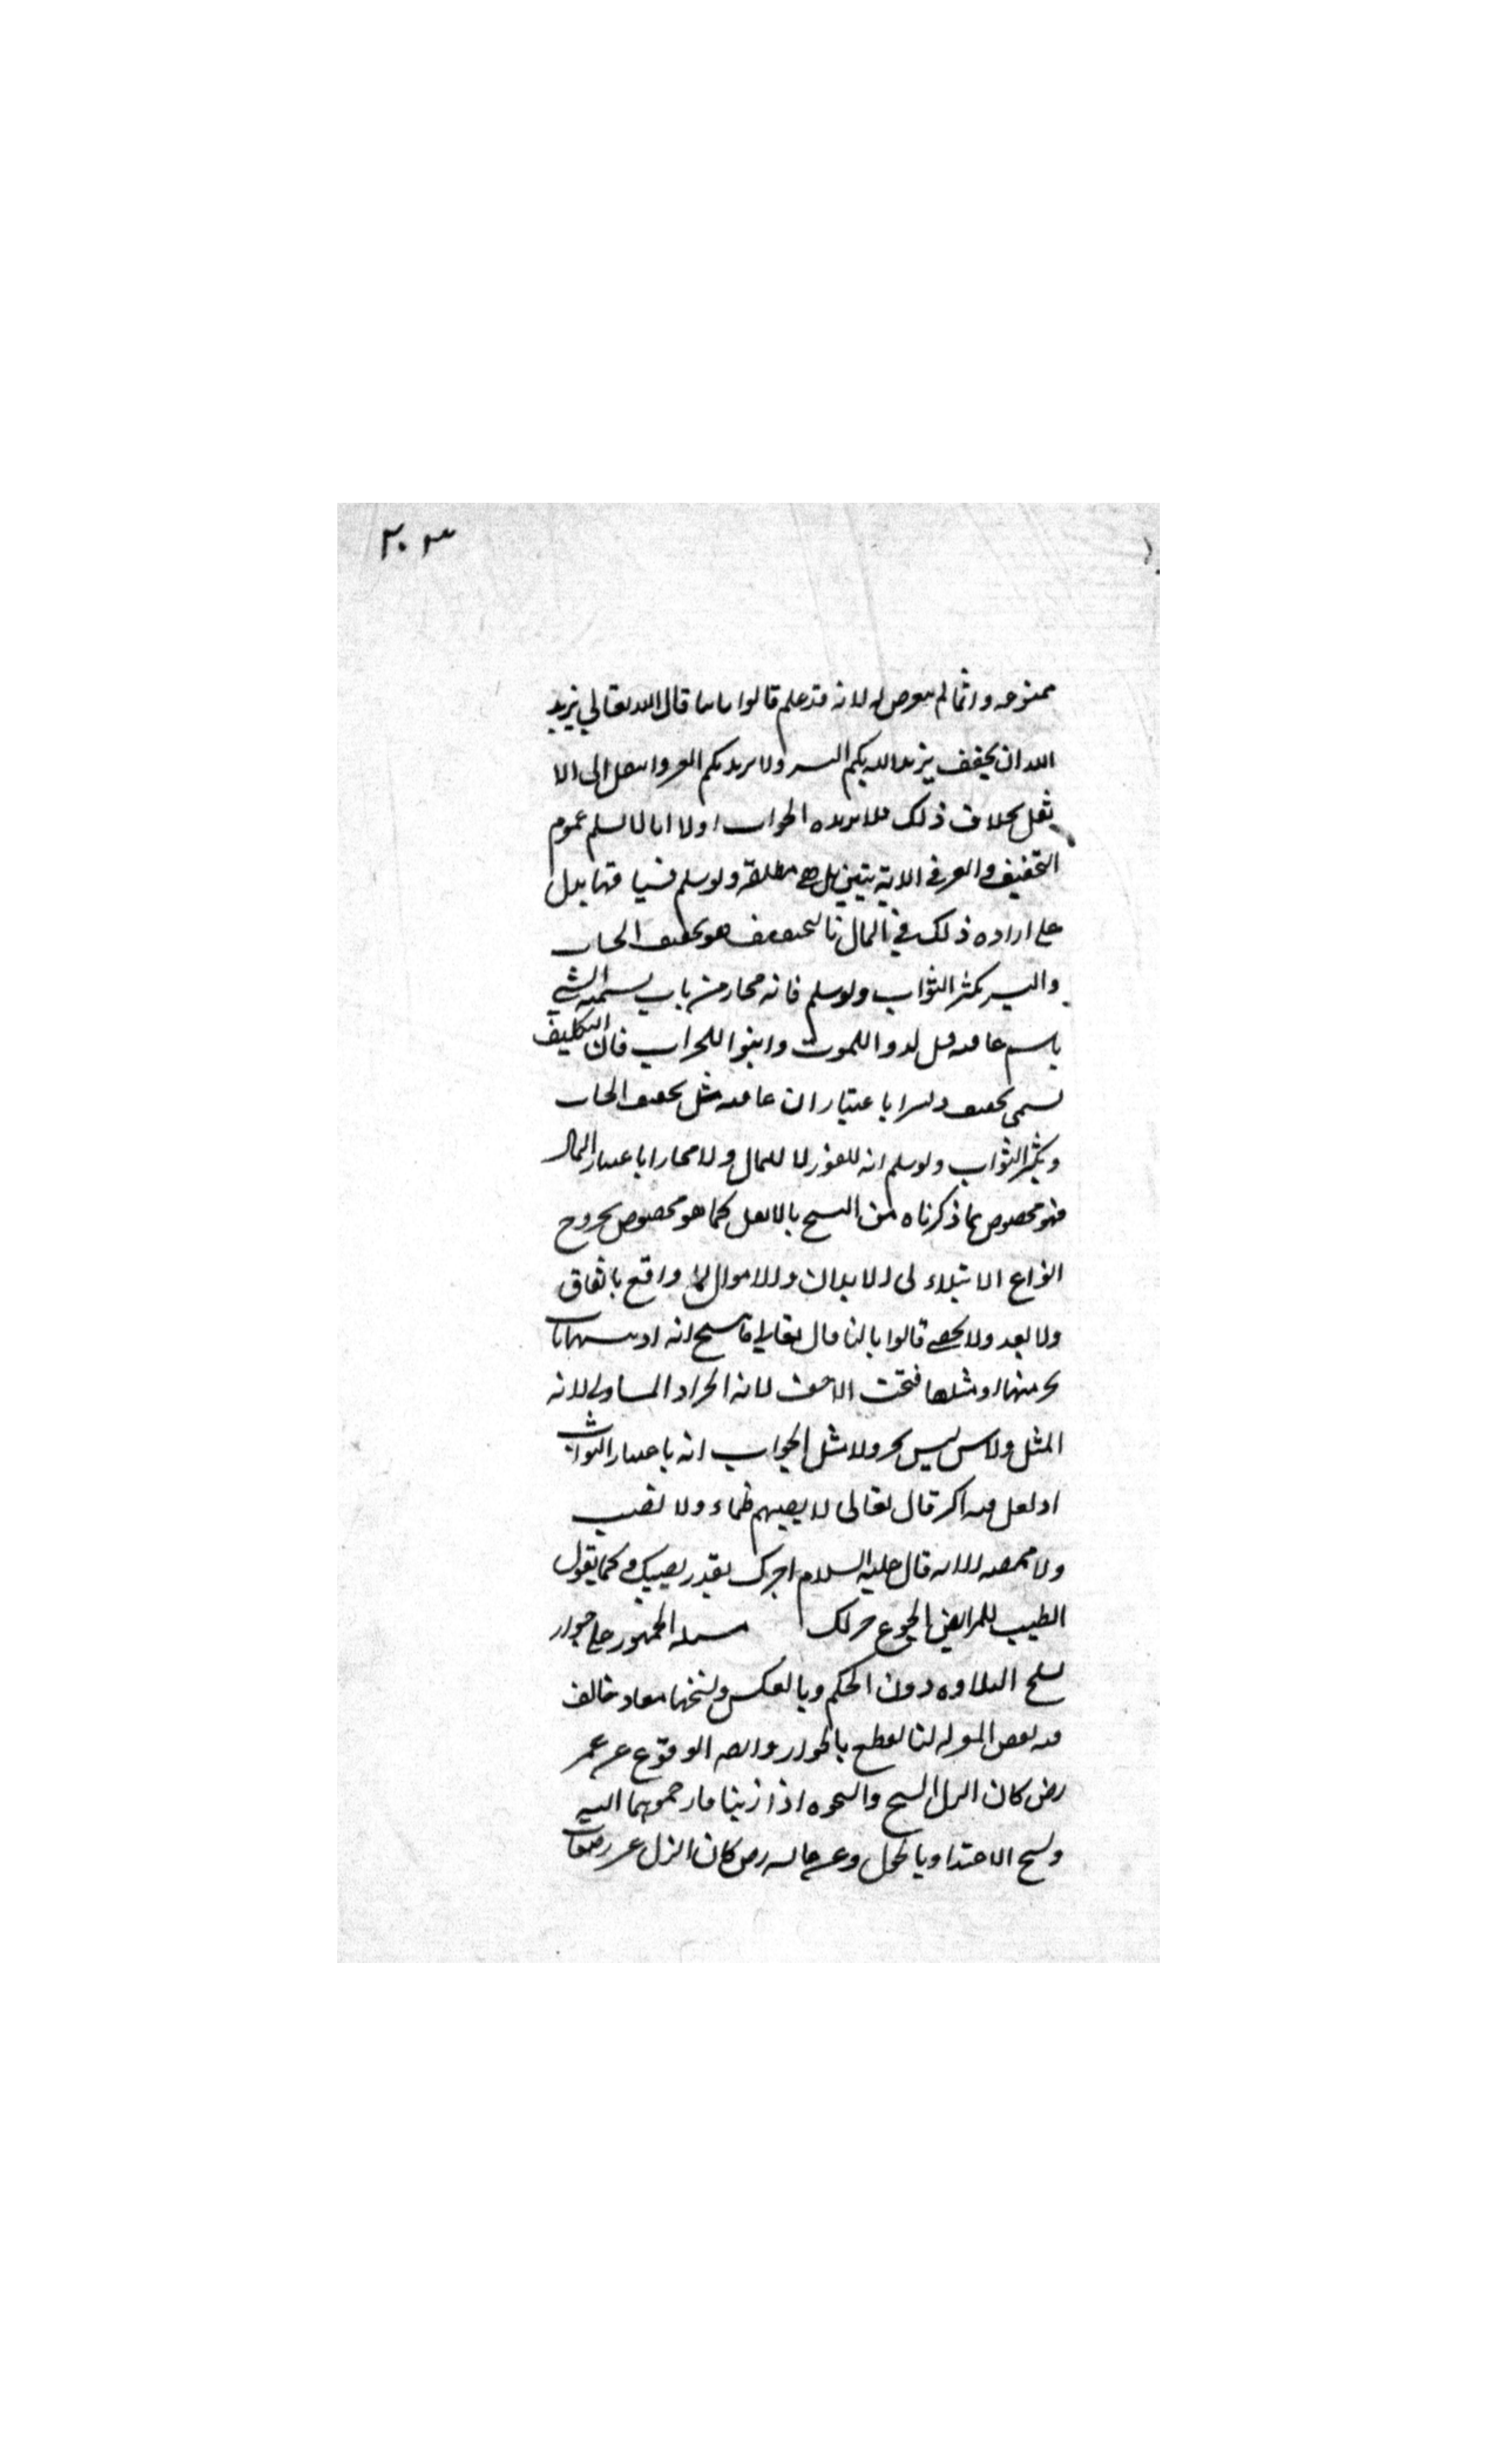 ٢٠٣
ممنوعه وانما لم يتعرض له لانه قد علم قالوا ثانيا قال الله تعالى يريد
الله ان يخفف يريد الله بكم اليسر ولا يريد بكم العسر والنقل الى الا
ثقل بخلاف ذلك فلا يريده الجواب اولا انا لا نسلم عموم
التخفيف والعسر في الايتين بل هي مطلقه ولو سلم فسياقها يدل
على اراده ذلك في المال فالتخفيف هو تخفيف الحساب
واليسر تكثير الثواب ولو سلم فانه مجاز من باب تسميه الشي
باسم عاقبته مثل لدوا للموت وابنوا للخراب فان التكليف
يسمى تخفيفا ويسرا باعتبار ان عاقبته مثل تخفيف الحساب
وتكثير الثواب ولو سلم انه للفور لا للمال ولا مجازا باعتبار المال
فهو مخصوص بما ذكرناه من النسخ بالاثقل كما هو مخصوص بخروج
انواع الابتلاء في الابدان والاموال مما واقع باتفاق
ولا يعد ولا يحصى قالوا ثالثا قال تعالى ما ننسخ من ايه او ننسها نات
بخير منها او مثلها فتحت الاخف لانه الخير او المساوي لانه
المثل والاشق ليس بخير ولا مثل الجواب انه باعتبار الثواب
اذ لعل فيه اكثر قال تعالى لا يصيبهم ظماء ولا نصب
ولا مخمصه الايه قال عليه السلام اجرك بقدر نصيبك وكما يقول
الطبيب للمرايض الجوع خير لك مسئله الجمهور على جواز
نسخ التلاوه دون الحكم وبالعكس ونسخهما معا وخالف
فيه بعض المعتزله لنا القطع بالجواز وايضا الوقوع عن عمر
رض كان فيما انزل الشيخ والشيخه اذا زنيا فارجموهما البته
ونسخ الاعتداد بالحول وعن عايشه رض كان فيما انزل عشر رضعات